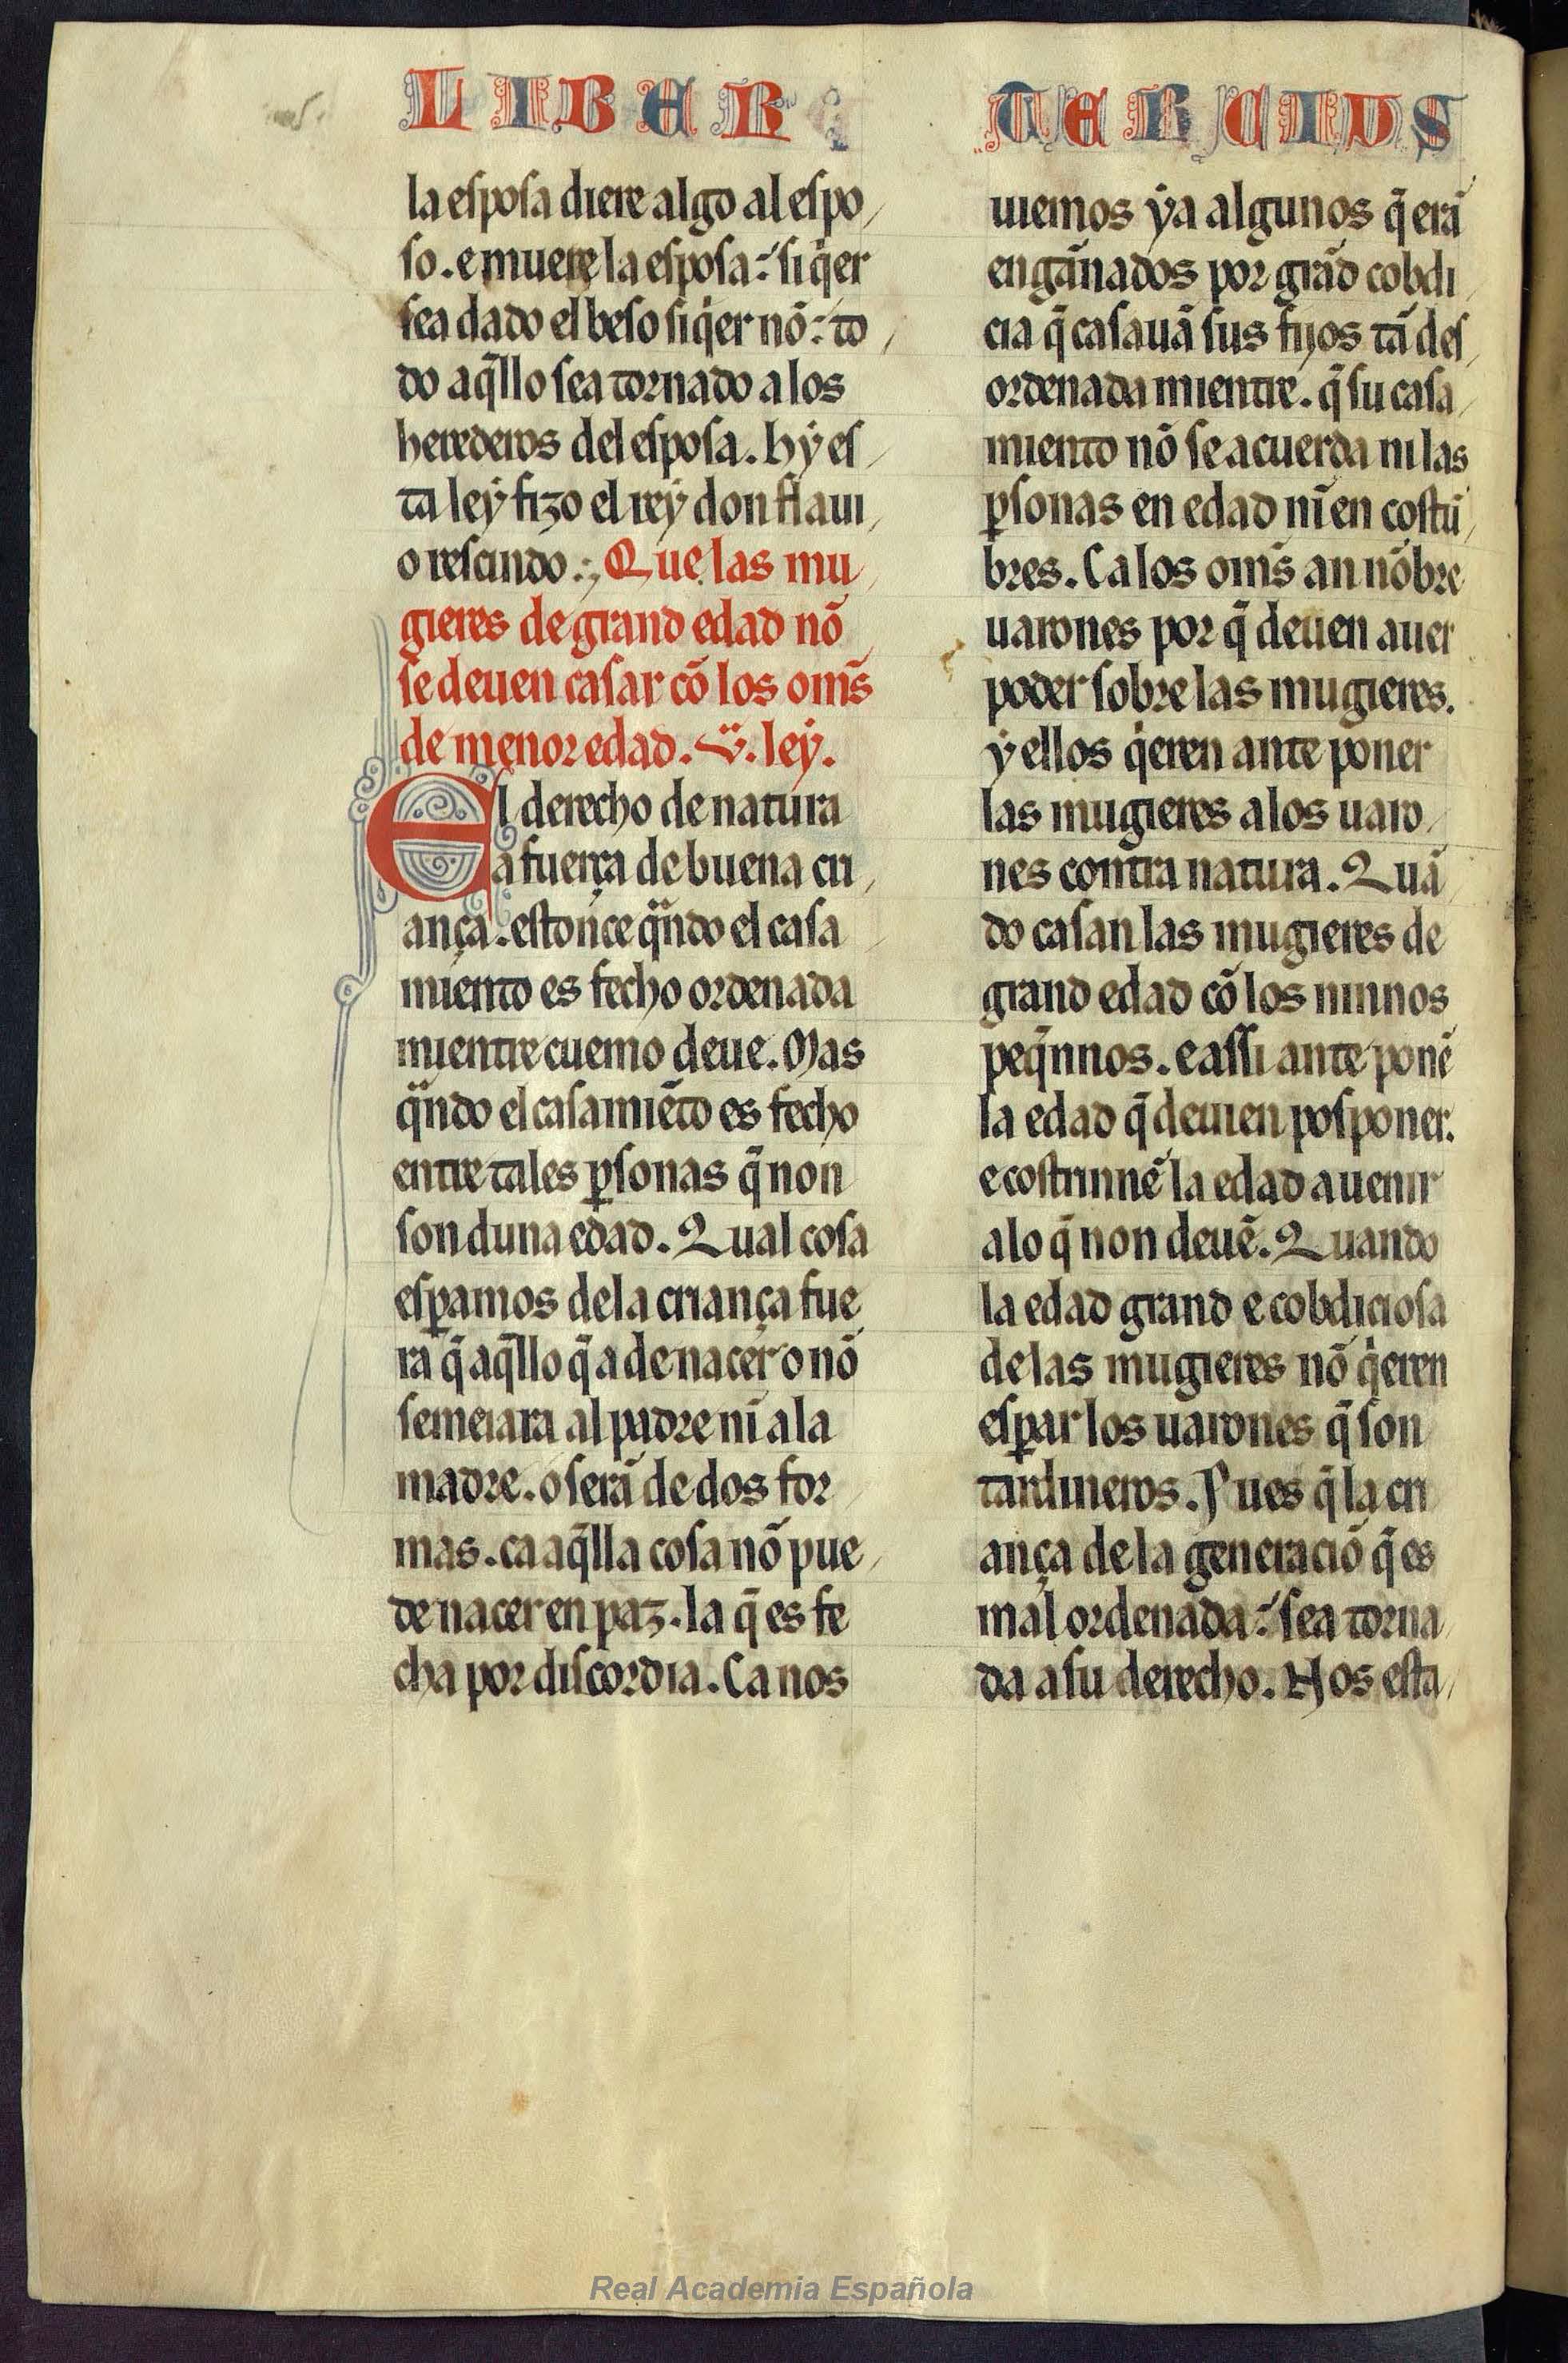 LIBER
TERCIUS
la esposa diere algo al espo
so. e muere la esposa: si q̇er
sea dado el beso siq̇er nõ: to
do aq̃llo sea tornado a los
herederos del esposa. hẏ es
ta leẏ fizo el reẏ don flaui
o rescindo. Que las mu
gieres de grand edad nõ
se deuen casar cõ los om̃s
de menor edad. V. leẏ.
El derecho de natura
a fuerça de buena cri
ança. estonce qñdo el casa
miento es fecho ordenada
mientre cuemo deue. Mas
qñdo el casamiẽto es fecho
entre tales ꝑsonas q̃ non
son duna edad. Qual cosa
esꝑamos de la criança fue
ra q̃ aq̃llo q̃ a de nacer o nõ
semeiara al padre nĩ a la
madre. o será de dos for
mas. ca aq̃lla cosa nõ pue
de nacer en paz. la q̃ es fe
cha por discordia. Ca nos
uiemos ẏa algunos q̃ erã
engannados por grãd cobdi
cia q̃ casauã sus fijos tã des
ordenada mientre. q̃ su casa
miento nõ se acuerda ni las
ꝑsonas en edad nĩ en costũ
bres. Ca los om̃s an nõbre
uarones por q̃ deuen auer
poder sobre las mugieres.
ẏ ellos q̇eren ante poner
las mugieres a los uaro
nes contra natura. Quã
do casan las mugieres de
grand edad cõ los ninnos
peq̃nnos. e assi ante ponẽ
la edad q̃ deuien posponer.
e costrinnẽ la edad a uenir
a lo q̃ non deuẽ. Quando
la edad grand e cobdiciosa
de las mugieres nõ q̇eren
esꝑar los uarones q̃ son
tardineros. Pues q̃ la cri
ança de la generaciõ q̃ es
mal ordenada: sea torna
da a su derecho. Nos esta
Real Academia Española